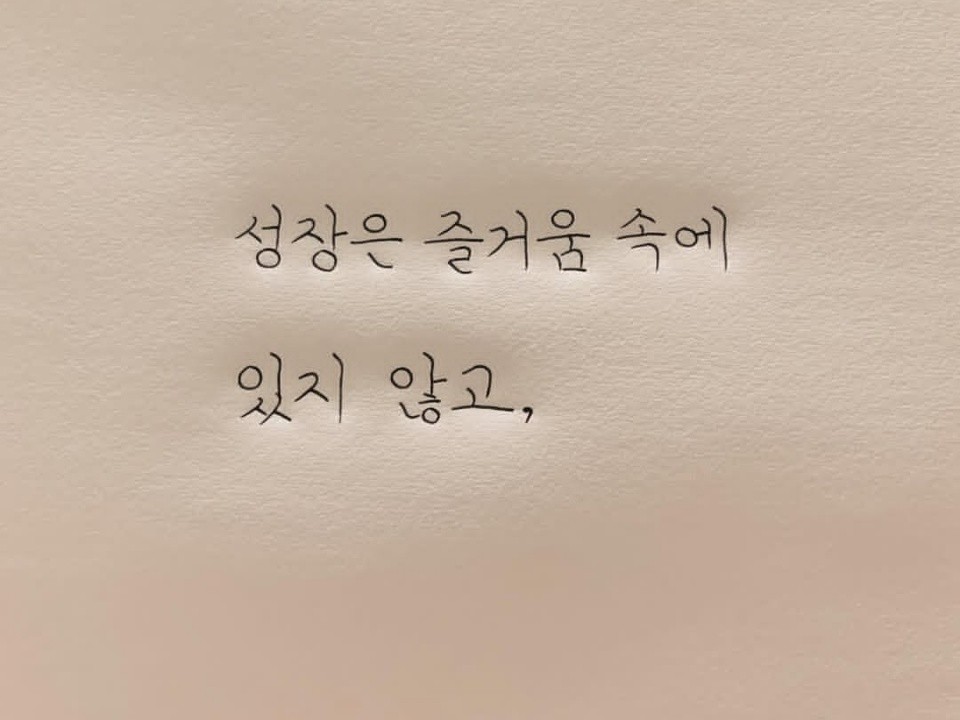 성장은 즐거움 속에
있지 않고,